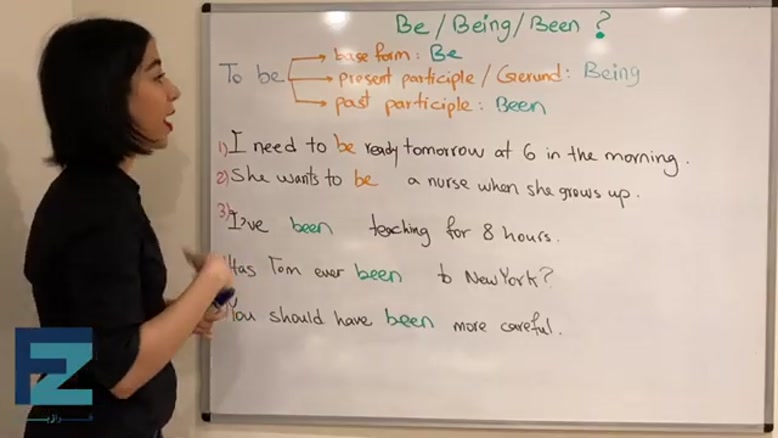 Be / Being / Been ?
base form : Be
To be present participle / Gerund : Being
past participle : Been
1) I need to be ready tomorrow at 6 in the morning.
2) She wants to be a nurse when she grows up.
3) I've been teaching for 8 hours.
Has Tom ever been to New York?
You should have been more careful.
FZ
فرازبان